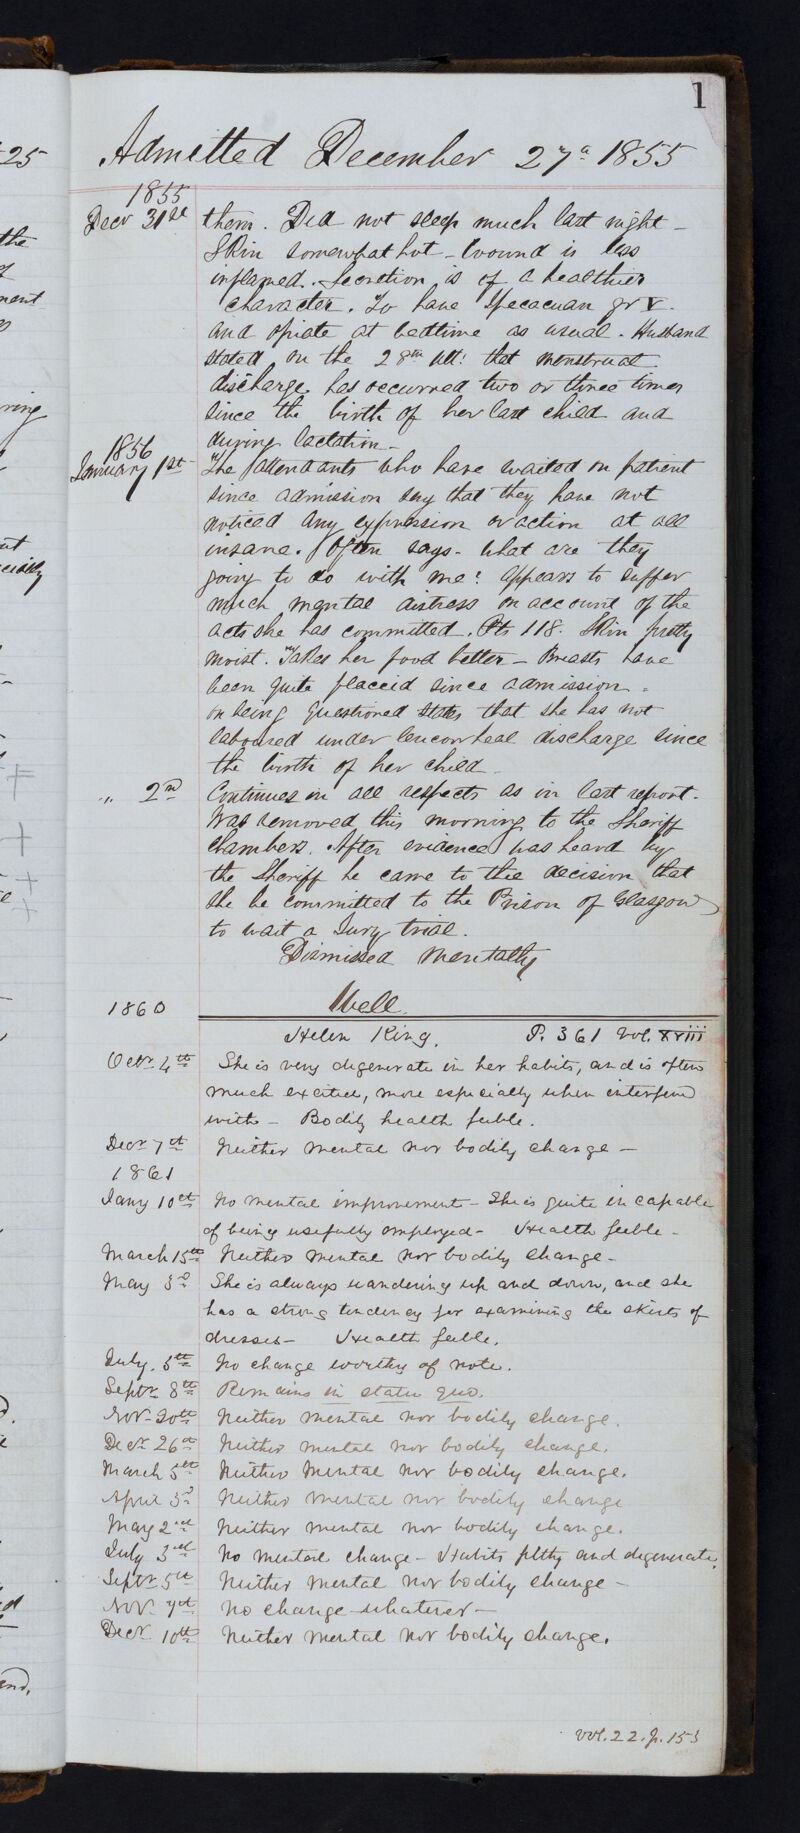 1
Admitted December 27th 1855
1855
Decr 31st them. Did not sleep much last night –
Skin somewhat hot – Wound is less
inflamed. Secretion is of a healthier
character. To have Ipecacuan gr V.
and opiate at bedtime as usual. Husband
stated on the 28th ult: that menstrual
discharge has occurred two or three times
since the birth of her last child and
during lactation –
1856
January 1st The attendants who have waited on patient
since admission say that they have not
noticed any expression or action at all
insane. Often says – What are they
going to do with me? Appears to suffer
much mental distress on account of the
acts she has committed. Pls 118. Skin pretty
moist. Takes her food better – Breasts have
been quite flaccid since admission –
on being questioned states that she has not
laboured under leucorrheal discharge since
the birth of her child –
" 2nd Continues in all respects as in last report.
Was removed this morning to the Sheriff
Chambers. After evidence was heard by
the Sheriff he came to the decision that
she be committed to the Prison of Glasgow
to wait a Jury trial.
Dismissed Mentally
Well
1860
Helen King. P. 361 Vol. xviii
Octr 4th She is very degenerate in her habits, and is often
much excited, more especially when interfered
with – Bodily health feeble.
Decr 7th Neither mental nor bodily change –
1861
Jany 10th No mental improvement – She is quite incapable
of being usefully employed – Health feeble –
March 15th Neither mental nor bodily change –
May 3d She is always wandering up and down, and she
has a strong tendency for examining the skirts of
dresses – Health feeble.
July 5th No change worthy of note.
Septr 8th Remains in statu quo.
Nov. 20th Neither mental nor bodily change.
Decr 26th Neither mental nor bodily change.
March 5th Neither Mental nor bodily change.
April 3d Neither mental nor bodily change
May 2nd Neither mental nor bodily change.
July 3rd No mental change – Habits filthy and degenerate.
Septr 5th Neither Mental nor bodily change –
Nov. 7th No change whatever –
Decr 10th Neither Mental nor bodily change.
vol. 22. p. 153